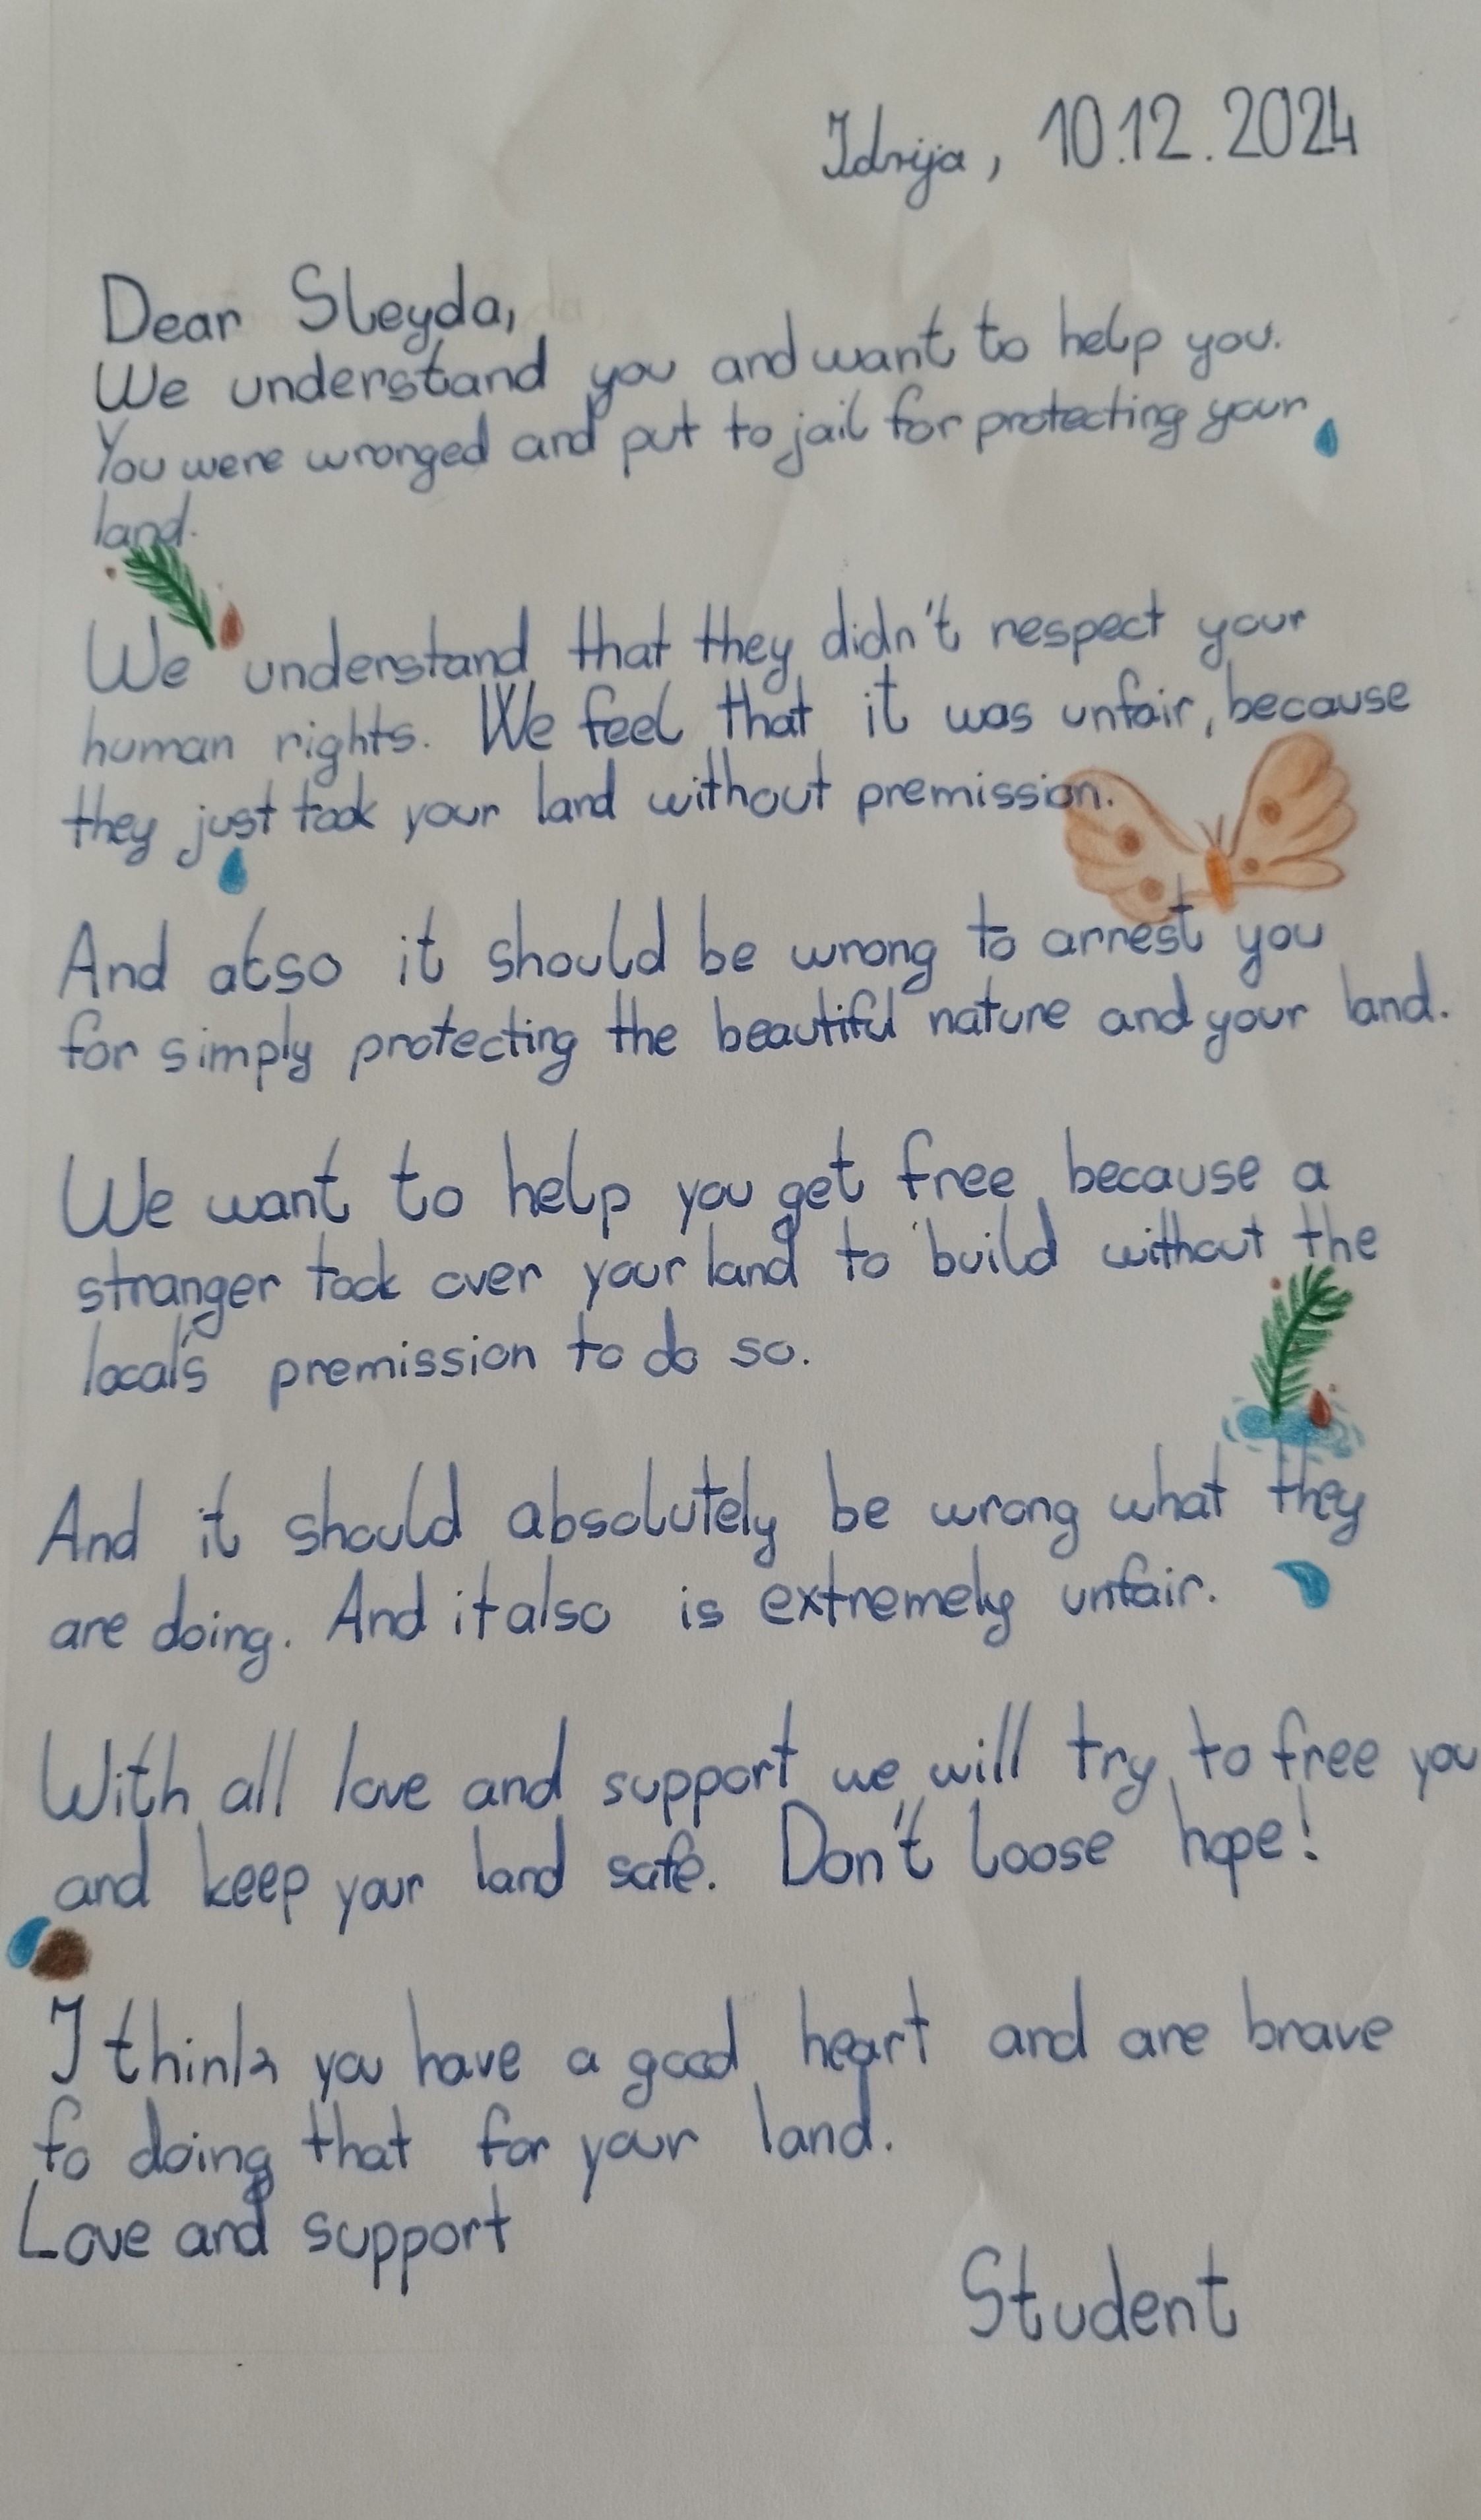 Idrija, 10.12.2024
Dear Sleyda,
We understand you and want to help you.
You were wronged and put to jail for protecting your
land.
We understand that they didn't respect your
human rights. We feel that it was unfair, because
they just took your land without premission.
And also it should be wrong to arrest you
for simply protecting the beautiful nature and your land.
We want to help you get free, because a
stranger took over your land to build without the
local's premission to do so.
And it should absolutely be wrong what they
are doing. And it also is extremely unfair.
With all love and support we will try to free you
and keep your land safe. Don't loose hope!
I think you have a good heart and are brave
fo doing that for your land.
Love and support
Student